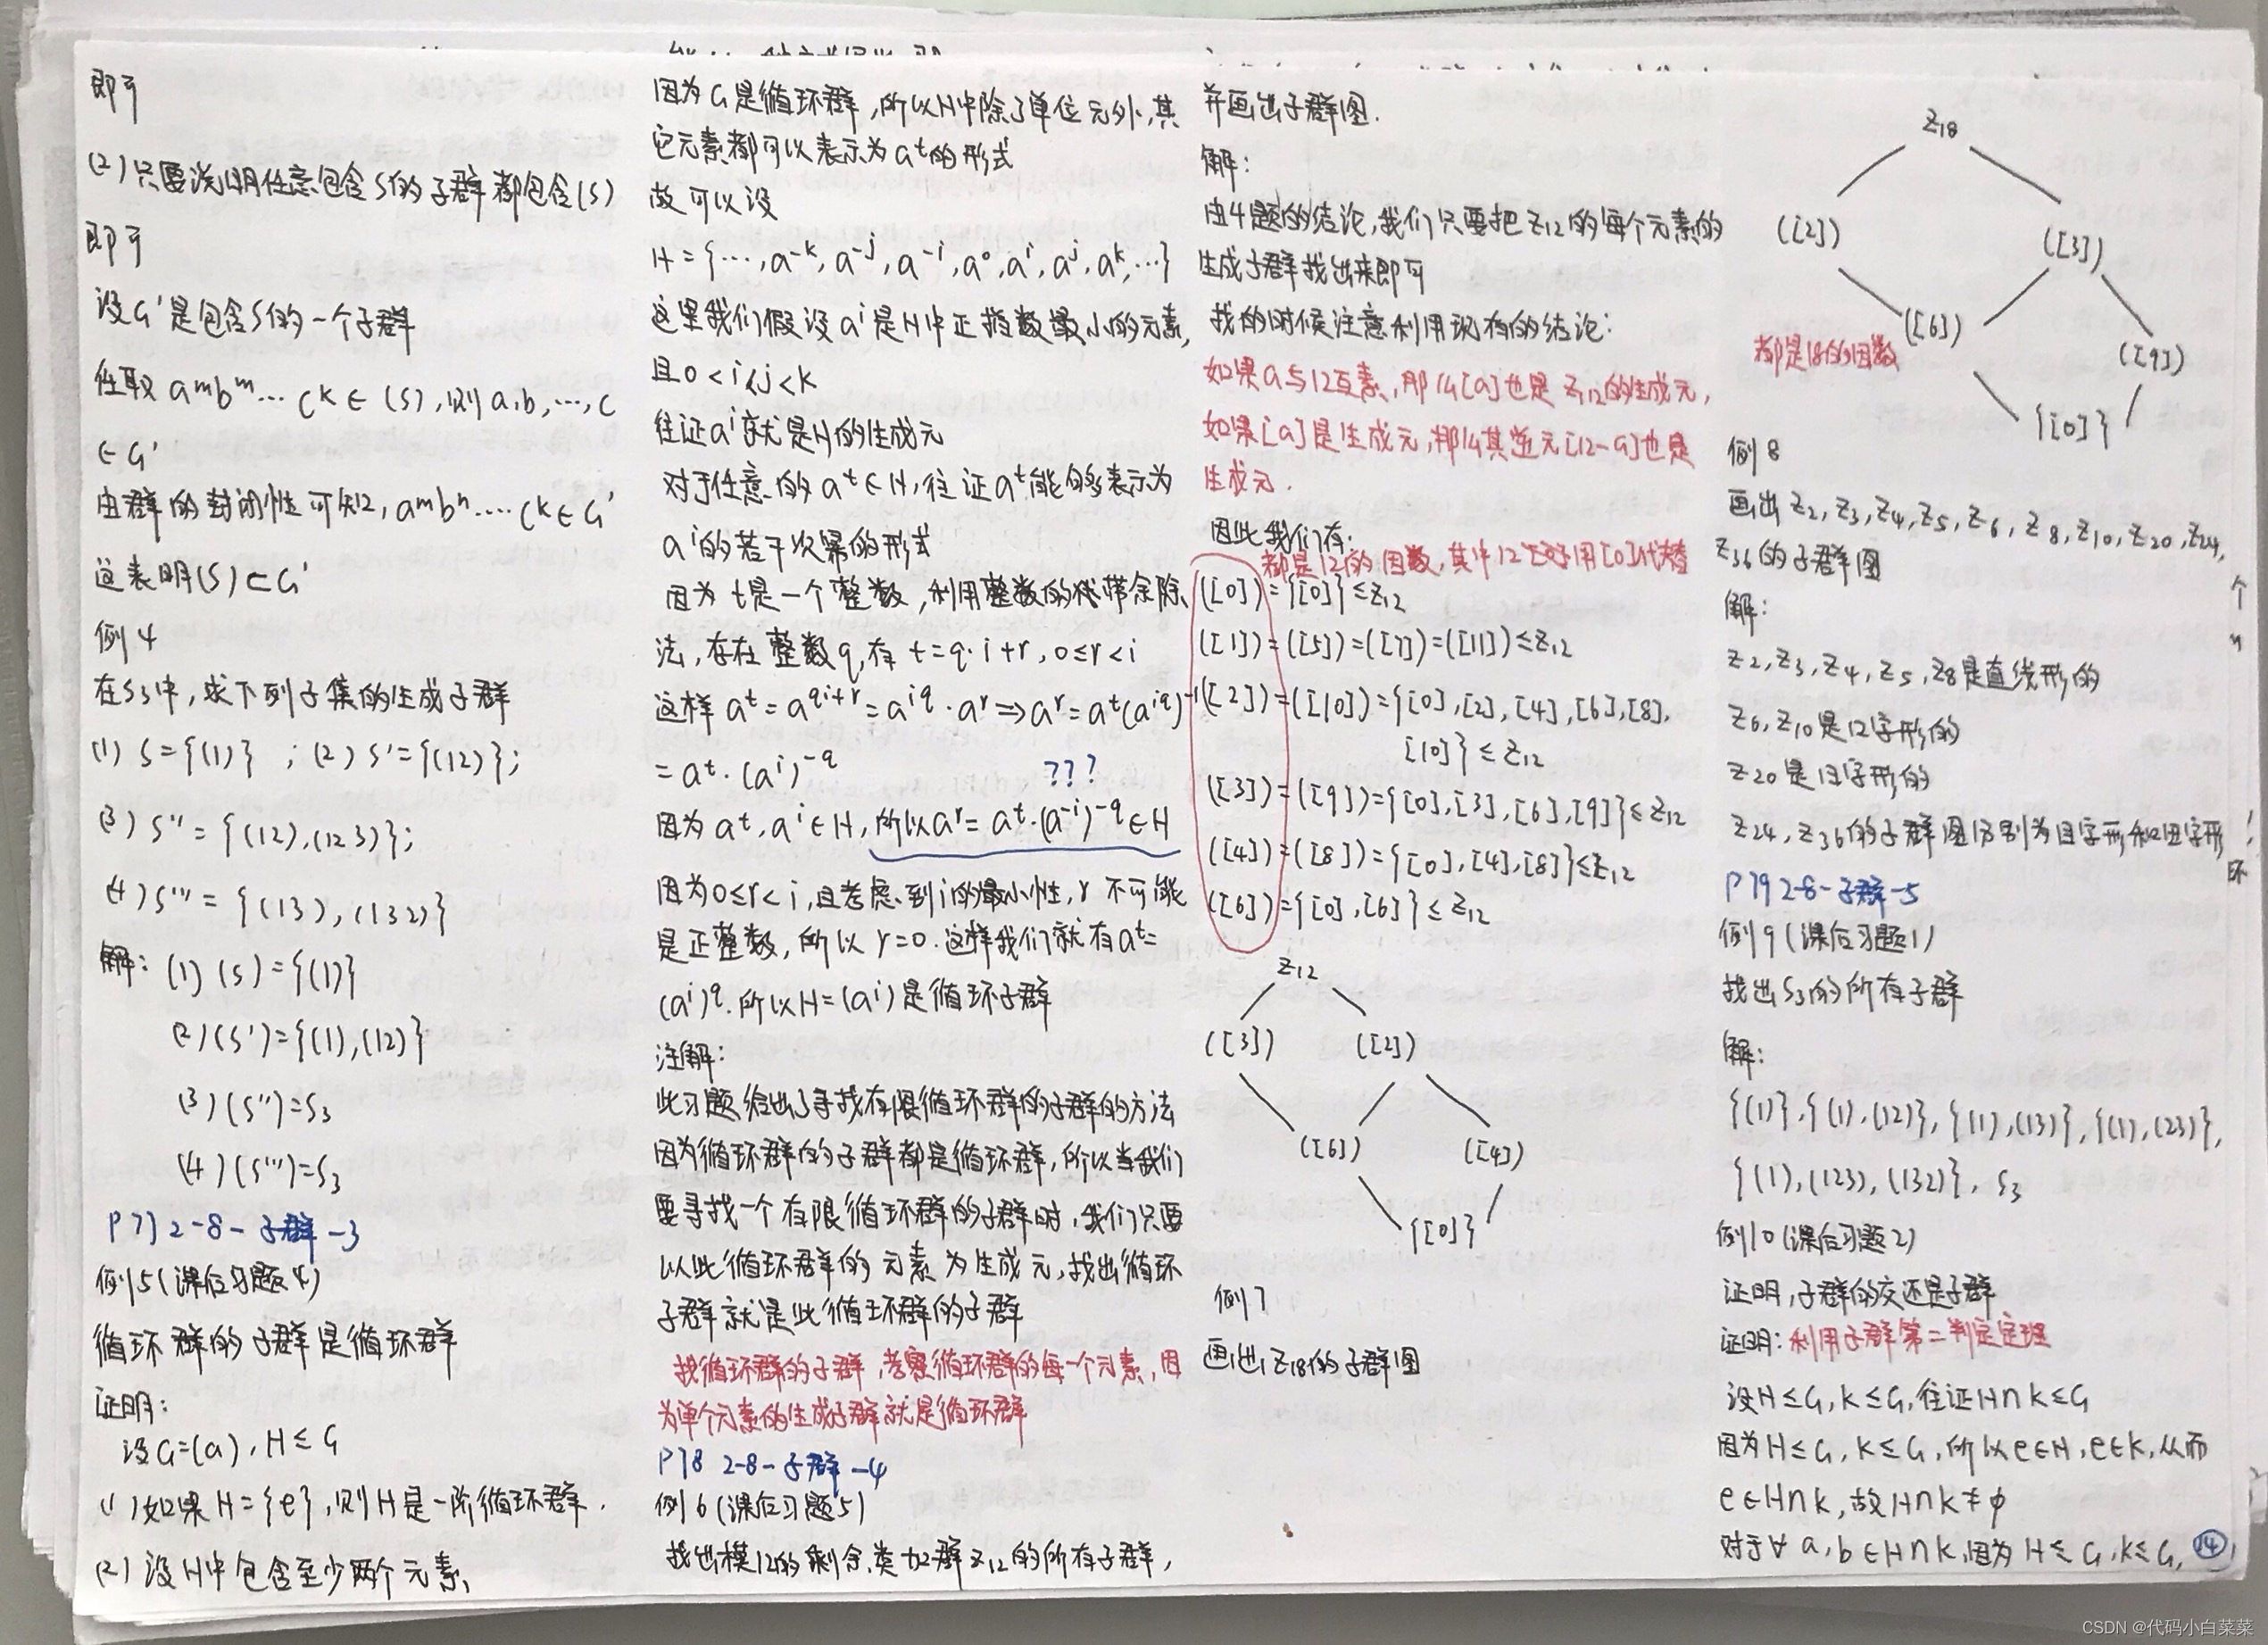 即可
(2)只要说明任意包含S的子群都包含(S)
即可
设G'是包含S的一个子群
任取 aᵐbᵐ… cᵏ∈(S),则a,b,…,c
∈G'
由群的封闭性可知,aᵐbⁿ…cᵏ∈G'
这表明(S)⊂G'
例4
在S₃中,求下列子集的生成子群
(1) S={(1)} ;(2) S'={(12)};
(3) S''={(12),(123)};
(4) S'''={(13),(132)}
解:(1) (S)={(1)}
(2)(S')={(1),(12)}
(3)(S'')=S₃
(4)(S''')=S₃
P77 2-8-子群-3
例5(课后习题4)
循环群的子群是循环群
证明:
设G=(a),H≤G
(1)如果H={e},则H是一阶循环群.
(2)设H中包含至少两个元素,
因为G是循环群,所以H中除了单位元外,其
它元素都可以表示为aᵗ的形式
故可以设
H={…,a⁻ᵏ,a⁻ʲ,a⁻ⁱ,a⁰,aⁱ,aʲ,aᵏ,…}
这里我们假设aⁱ是H中正指数最小的元素,
且0<i<j<k
往证aⁱ就是H的生成元
对于任意的aᵗ∈H,往证aᵗ能够表示为
aⁱ的若干次幂的形式
因为t是一个整数,利用整数的带余除
法,存在整数q,有 t=q·i+r,0≤r<i
这样 aᵗ=a^{qi+r}=a^{iq}·aʳ⇒aʳ=aᵗ(a^{iq})⁻¹
=aᵗ·(aⁱ)^{-q} ???
因为aᵗ,aⁱ∈H,所以aʳ=aᵗ·(a⁻ⁱ)^{-q}∈H
因为0≤r<i,且考虑到i的最小性,r不可能
是正整数,所以r=0.这样我们就有aᵗ=
(aⁱ)^q.所以H=(aⁱ)是循环子群
注解:
此习题给出了寻找有限循环群的子群的方法
因为循环群的子群都是循环群,所以当我们
要寻找一个有限循环群的子群时,我们只要
以此循环群的元素为生成元,找出循环
子群就是此循环群的子群
找循环群的子群,考察循环群的每一个元素,因
为单个元素的生成子群就是循环群
P78 2-8-子群-4
例6(课后习题5)
找出模12的剩余类加群Z₁₂的所有子群,
并画出子群图.
解:
由4题的结论,我们只要把Z₁₂的每个元素的
生成子群找出来即可
找的时候注意利用现有的结论:
如果a与12互素,那么[a]也是Z₁₂的生成元,
如果[a]是生成元,那么其逆元[12-a]也是
生成元.
因此我们有:
都是12的因数,其中12正好用[0]代替
([0])={[0]}≤Z₁₂
([1])=([5])=([7])=([11])≤Z₁₂
([2])=([10])={[0],[2],[4],[6],[8],
[10]}≤Z₁₂
([3])=([9])={[0],[3],[6],[9]}≤Z₁₂
([4])=([8])={[0],[4],[8]}≤Z₁₂
([6])={[0],[6]}≤Z₁₂
Z₁₂
([3]) ([2])
([6]) ([4])
{[0]}
例7
画出Z₁₈的子群图
Z₁₈
([2]) ([3])
([6]) ([9])
都是18的因数
{[0]}
例8
画出Z₂,Z₃,Z₄,Z₅,Z₆,Z₈,Z₁₀,Z₂₀,Z₂₄,
Z₃₆的子群图
解:
Z₂,Z₃,Z₄,Z₅,Z₈是直线形的
Z₆,Z₁₀是口字形的
Z₂₀是日字形的
Z₂₄,Z₃₆的子群图分别为目字形和田字形
P79 2-8-子群-5
例9(课后习题1)
找出S₃的所有子群
解:
{(1)},{(1),(12)},{(1),(13)},{(1),(23)},
{(1),(123),(132)},S₃
例10(课后习题2)
证明,子群的交还是子群
证明:利用子群第二判定定理
设H≤G,K≤G,往证H∩K≤G
因为H≤G,K≤G,所以e∈H,e∈K,从而
e∈H∩K,故H∩K≠φ
对于∀a,b∈H∩K,因为H≤G,K≤G,
14
CSDN @代码小白菜菜